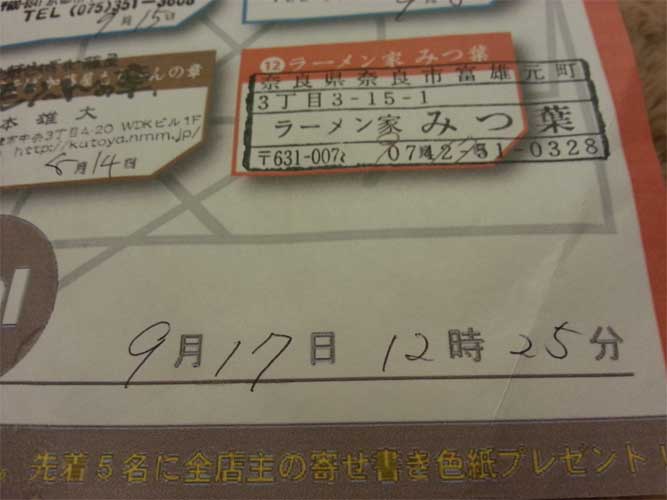 9月15日
TEL (075)351-3608
んの章
本 雄 大
3丁目4-20 WDKビル1F
http://kutoya.nmm.jp/
8月14日
⑫ラーメン家 みつ葉
奈良県奈良市富雄元町
3丁目3-15-1
ラーメン家 みつ葉
〒631-007 0742-51-0328
9月17日 12時25分
先着5名に全店主の寄せ書き色紙プレゼント!